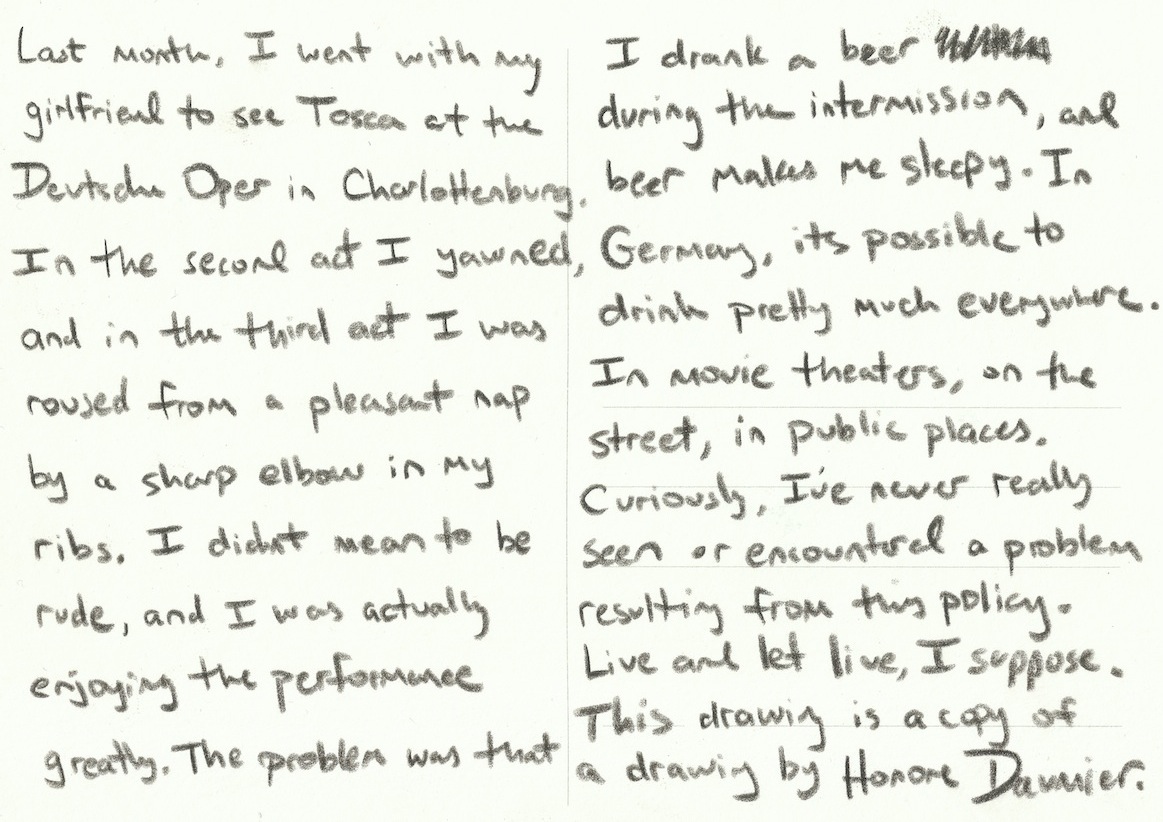 Last month, I went with my
girlfriend to see Tosca at the
Deutsche Oper in Charlottenburg.
In the second act I yawned,
and in the third act I was
roused from a pleasant nap
by a sharp elbow in my
ribs. I didn't mean to be
rude, and I was actually
enjoying the performance
greatly. The problem was that
I drank a beer
during the intermission, and
beer makes me sleepy. In
Germany, its possible to
drink pretty much everywhere.
In movie theaters, on the
street, in public places.
Curiously, I've never really
seen or encountered a problem
resulting from this policy.
Live and let live, I suppose.
This drawing is a copy of
a drawing by Honore Daumier.